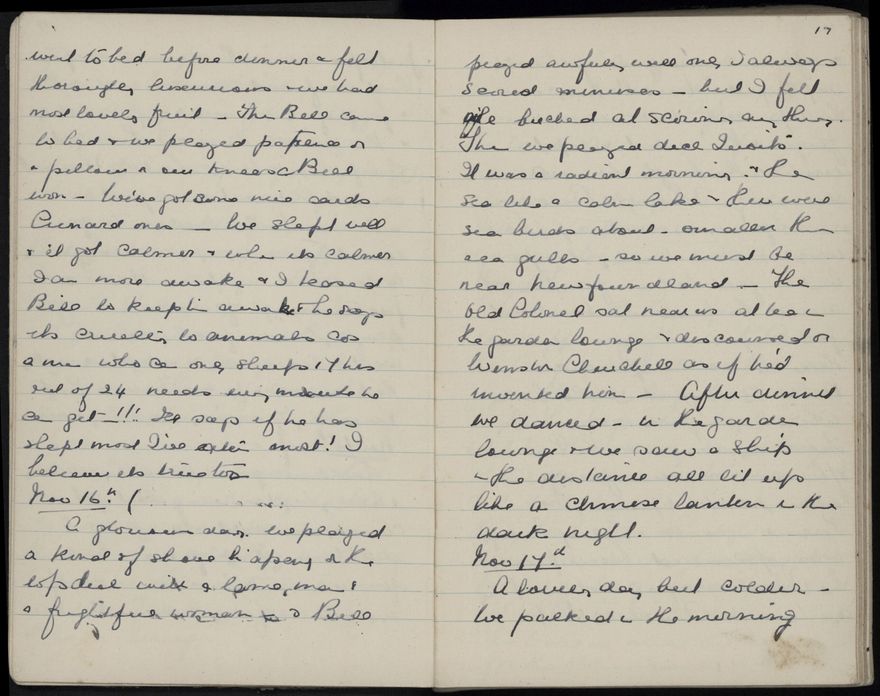 went to bed before dinner & felt
thoroughly luxurious & we had
most lovely fruit – Then Bill came
to bed & we played patience on
a pillow on our knees & Bill
won – We've got some nice cards
Cunard ones – We slept well
& it got calmer & when its calmer
I am more awake & I teased
Bill to keep him awake & he says
its cruelty to animals cos
a man who can only sleep 17 hrs
out of 24 needs every minute he
can get – !!! He says if he has
slept most I've eaten most! I
believe its true too
Nov 16th (
A glorious day. We played
a kind of shove ha'penny on the
top deck with a lame man &
a frightful woman & Bill
17
played awfully well only I always
scored minuses – but I felt
quite bucked at scoring anything.
Then we played deck quoits.
It was a radiant morning. & the
sea like a calm lake & there were
sea birds about – smaller than
sea gulls – so we must be
near Newfoundland – The
old Colonel sat near us at tea in
the garden lounge & discoursed on
Winston Churchill as if he'd
invented him – After dinner
we danced – in the garden
lounge & we saw a ship
in the distance all lit up
like a Chinese lantern in the
dark night.
Nov 17th
A lovely day but colder –
We packed in the morning